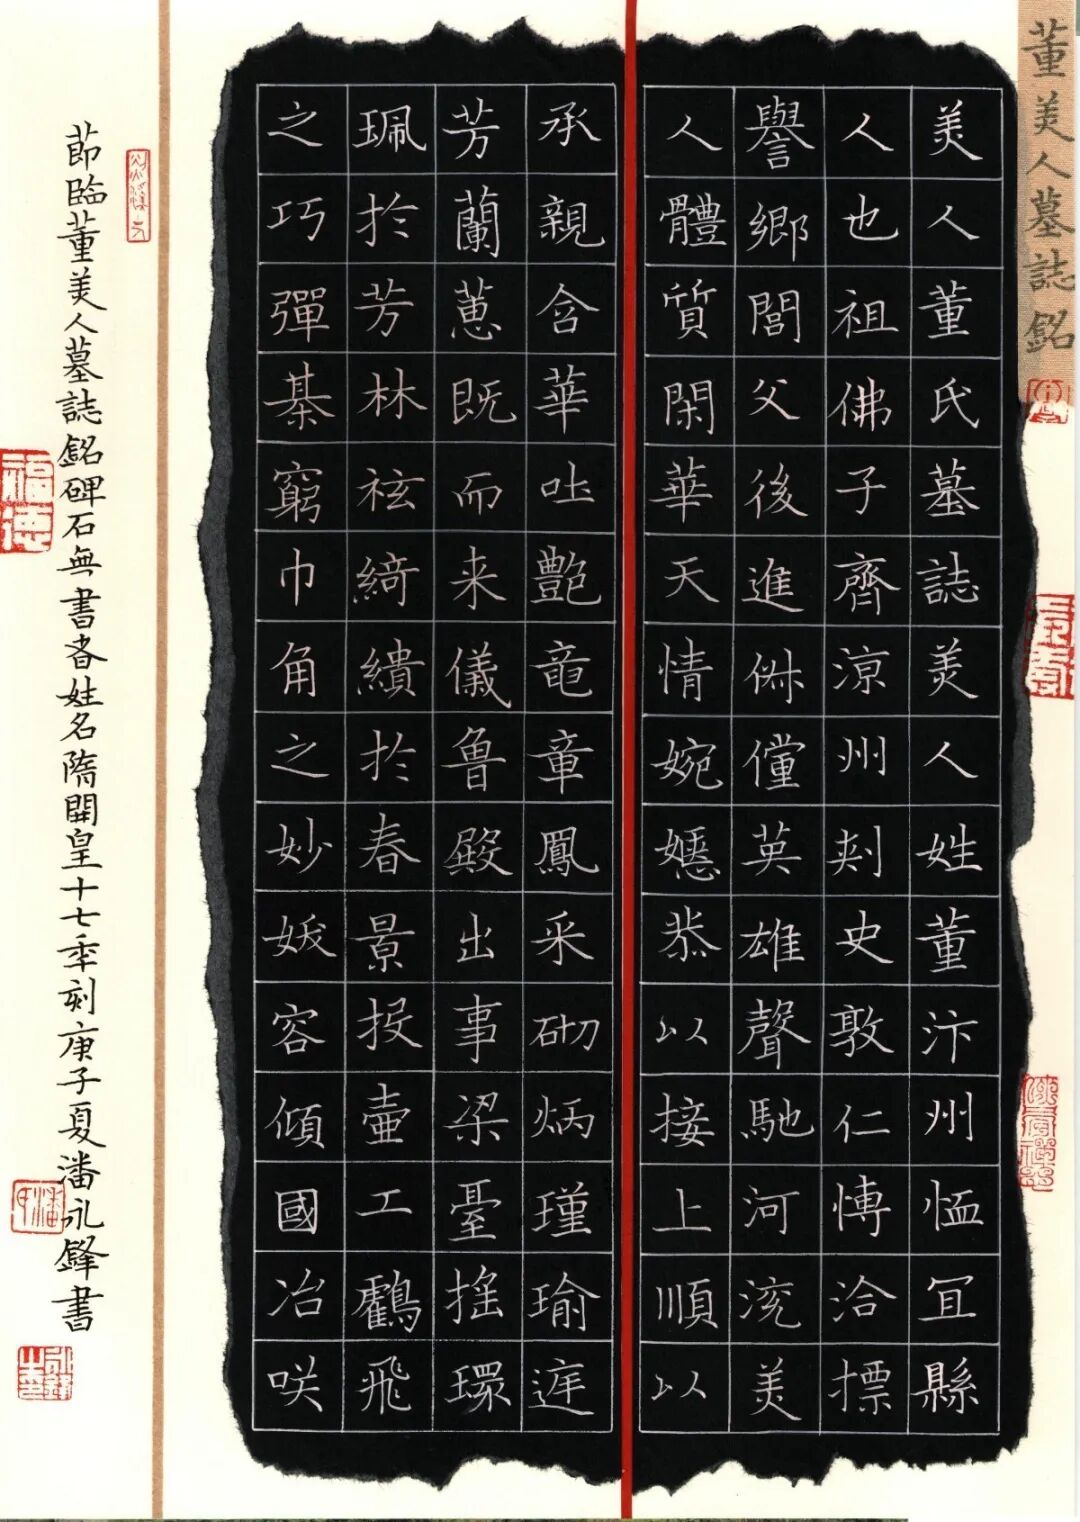 董美人墓誌銘
美人董氏墓誌美人姓董汴州恤冝縣
人也祖佛子齊涼州刾史敦仁博洽摽
譽鄉閭父後進俶儻英雄聲馳河渷美
人體質閑華天情婉嫕恭以接上順以
承親含華吐艷竜章鳳采砌炳瑾瑜逬
芳蘭蕙既而来儀魯殿出事梁臺搖環
珮於芳林袨綺繢於春景投壷工鸖飛
之巧彈棊窮巾角之妙妖容傾國冶咲
莭臨董美人墓誌銘碑石無書者姓名隋開皇十七年刻庚子夏潘永鋒書
福德